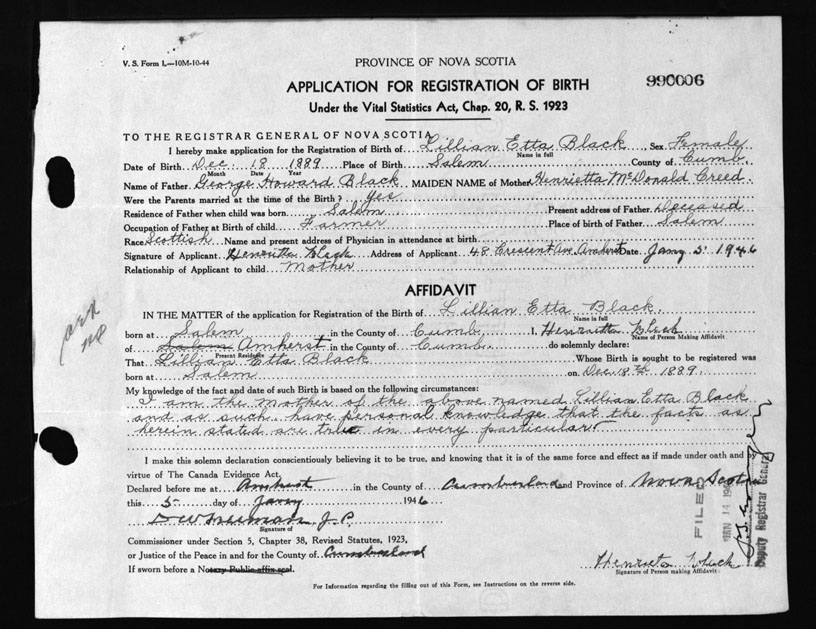 V. S. Form L—10M-10-44
PROVINCE OF NOVA SCOTIA
990006
APPLICATION FOR REGISTRATION OF BIRTH
Under the Vital Statistics Act, Chap. 20, R. S. 1923
TO THE REGISTRAR GENERAL OF NOVA SCOTIA
I hereby make application for the Registration of Birth of Lillian Etta Black, Sex Female
Name in full
Date of Birth Dec. 18 1889 Place of Birth Salem County of Cumb.
Month Date Year
Name of Father George Howard Black MAIDEN NAME of Mother Henrietta McDonald Creed
Were the Parents married at the time of the Birth? yes
Residence of Father when child was born Salem Present address of Father Deceased
Occupation of Father at Birth of child Farmer Place of birth of Father Salem
Race Scottish Name and present address of Physician in attendance at birth
Signature of Applicant Henrietta Black Address of Applicant 48 Crescent Ave Amherst Date Jany 5' 1946
Relationship of Applicant to child Mother
AFFIDAVIT
IN THE MATTER of the application for Registration of the Birth of Lillian Etta Black
Name in full
born at Salem in the County of Cumb. I, Henrietta Black
Name of Person Making Affidavit
of Salem Amherst in the County of Cumb. do solemnly declare:
Present Residence
That Lillian Etta Black Whose Birth is sought to be registered was
born at Salem on Dec. 18th 1889.
My knowledge of the fact and date of such Birth is based on the following circumstances:
I am the mother of the above named Lillian Etta Black
and as such have personal knowledge that the facts as
herein stated are true in every particular
I make this solemn declaration conscientiously believing it to be true, and knowing that it is of the same force and effect as if made under oath and by
virtue of The Canada Evidence Act.
Declared before me at Amherst in the County of Cumberland and Province of Nova Scotia
this 5 day of Jany 1946
J. P.
Signature of
Commissioner under Section 5, Chapter 38, Revised Statutes, 1923,
or Justice of the Peace in and for the County of Cumberland
If sworn before a Notary Public affix seal.
Henrietta Black
Signature of Person making Affidavit
For Information regarding the filling out of this Form, see Instructions on the reverse side.
FILED
JAN 14 194
Deputy Registrar General